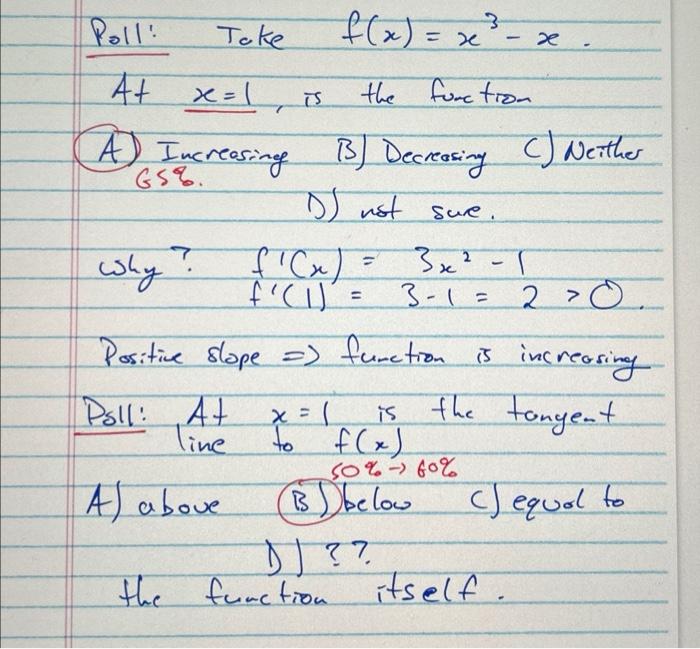 Poll: Take f(x) = x³ - x .
At x=1, is the function
A) Increasing B) Decreasing C) Neither
65%.
D) not sure.
Why? f'(x) = 3x² - 1
f'(1) = 3-1 = 2 > 0.
Positive slope => function is increasing
Poll: At x=1 is the tangent
line to f(x)
50% → 60%
A) above B) below C) equal to
D) ??
the function itself.